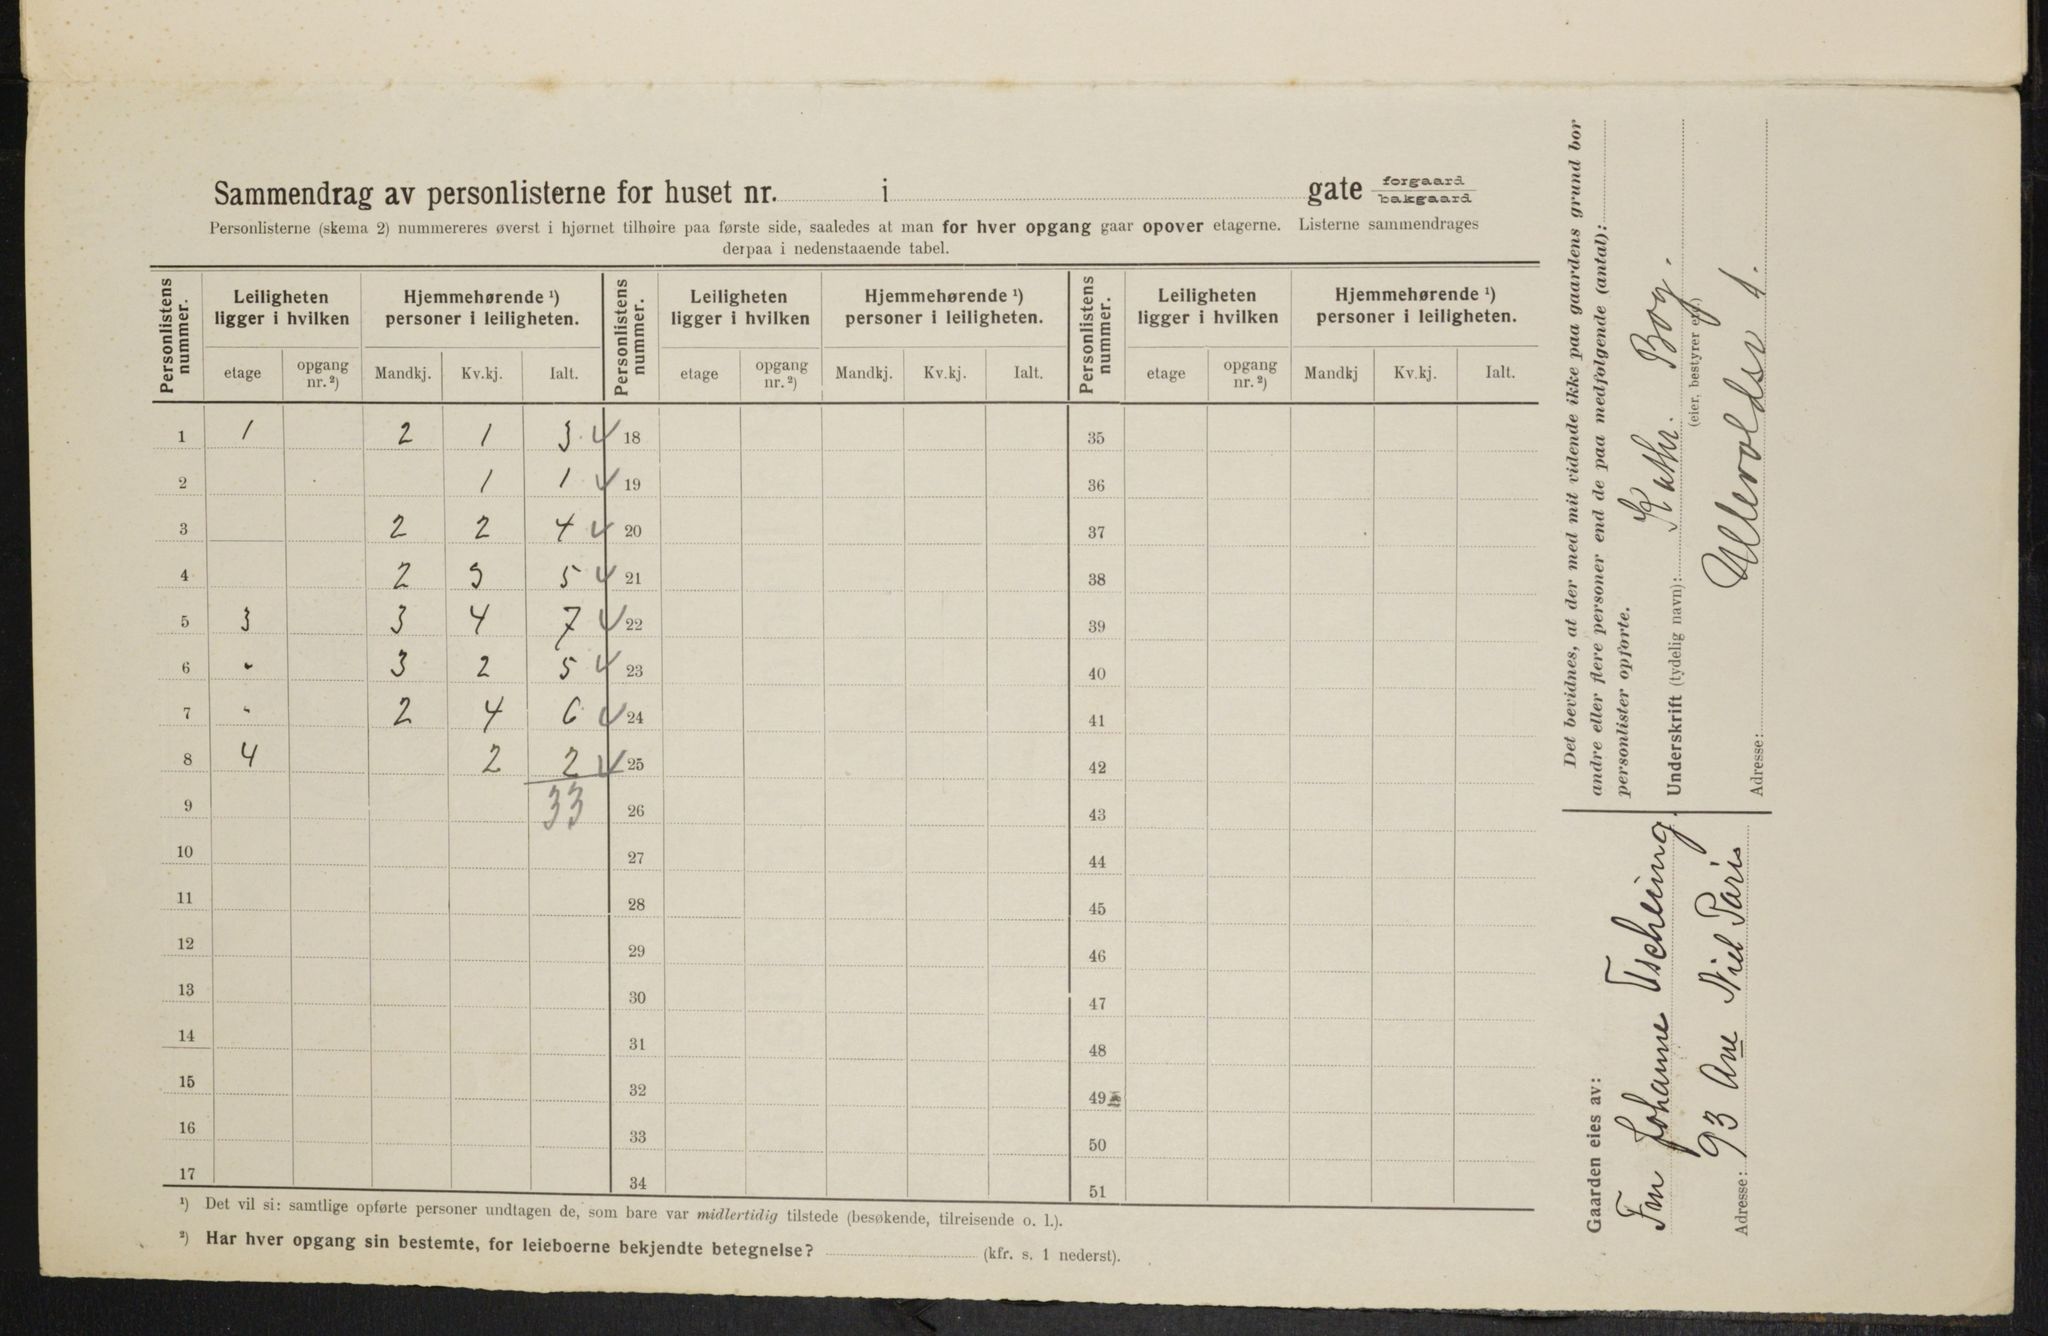 Sammendrag av personlisterne for huset nr. i gate forgaard bakgaard
Personlisterne (skema 2) nummereres øverst i hjørnet tilhøire paa første side, saaledes at man for hver opgang gaar opover etagerne. Listerne sammendrages
derpaa i nedenstaaende tabel.
Personlistens nummer. Leiligheten ligger i hvilken Hjemmehørende ¹) personer i leiligheten. Personlistens nummer. Leiligheten ligger i hvilken Hjemmehørende ¹) personer i leiligheten. Personlistens nummer. Leiligheten ligger i hvilken Hjemmehørende ¹) personer i leiligheten.
etage opgang nr. ²) Mandkj. Kv.kj. Ialt. etage opgang nr. ²) Mandkj. Kv.kj. Ialt. etage opgang nr. ²) Mandkj Kv.kj. Ialt.
1 1 2 1 3 18 35
2 1 1 19 36
3 2 2 4 20 37
4 2 3 5 21 38
5 3 3 4 7 22 39
6 " 3 2 5 23 40
7 " 2 4 6 24 41
8 4 2 2 25 42
9 33 26 43
10 27 44
11 28 45
12 29 46
13 30 47
14 31 48
15 32 49
16 33 50
17 34 51
¹) Det vil si: samtlige opførte personer undtagen de, som bare var midlertidig tilstede (besøkende, tilreisende o. l.).
²) Har hver opgang sin bestemte, for leieboerne bekjendte betegnelse? (kfr. s. 1 nederst).
Det bevidnes, at der med mit vidende ikke paa gaardens grund bor
andre eller flere personer end de paa medfølgende (antal):
personlister opførte.
Underskrift (tydelig navn): Kathr. Bog.
(eier, bestyrer etc.)
Adresse: Ullevoldsv 1.
Gaarden eies av:
Fru Johanne Tscheiing.
Adresse: 93 Ave Niel Paris